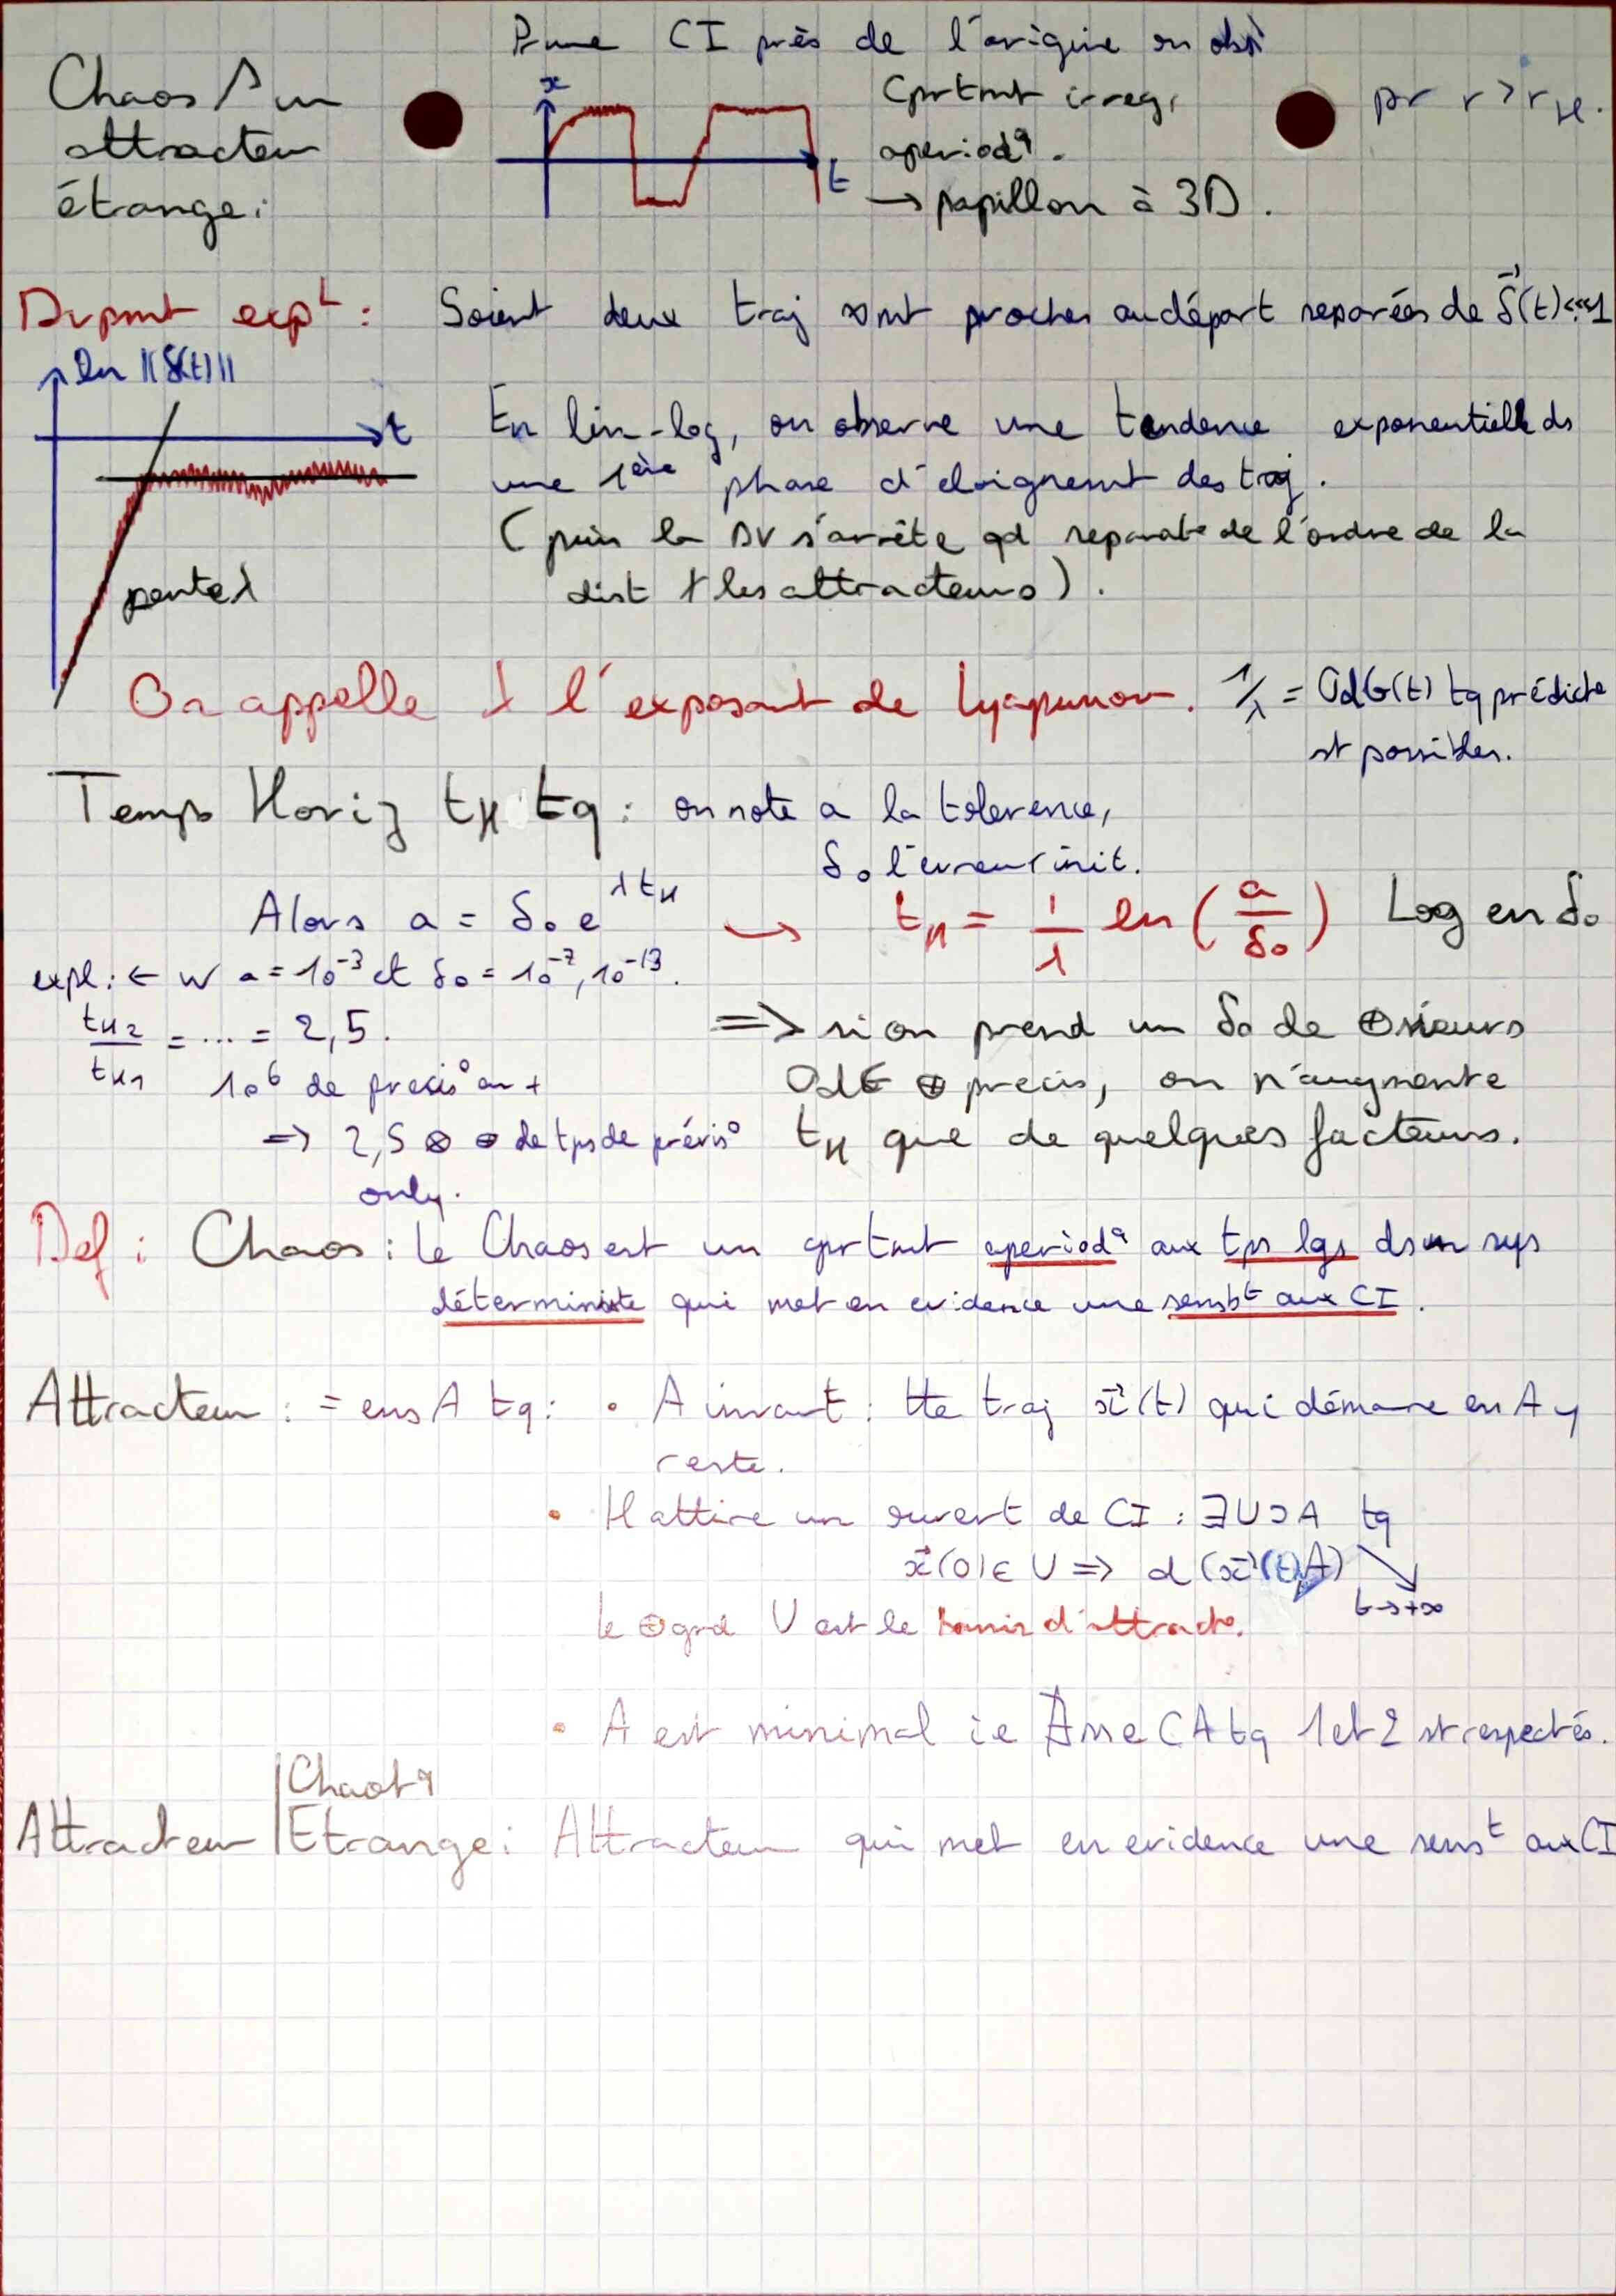 Pr une CI près de l'origine on obs
Chaos / un
attracteur
étrange:
x
t
Cportmt irreg,
aperiodq.
→ papillon à 3D.
pr r > rH.
Dvpmt expt : Soient deux traj sont proches au départ separées de δ(t) <<1
ln ||δ(t)||
t
pente λ
En lin-log, on observe une tendence exponentielle ds
une 1ère phase d'eloignemt des traj.
(puis la DV s'arrête qd separat° de l'ordre de la
dist / les attracteurs).
On appelle λ l'exposant de Lyapunov. 1/λ = OdG(t) tq prédict°
st possibles.
Temps Horiz tH tq : on note a la tolerence,
δ0 l'erreur init.
Alors a = δ0 e^λtH → tH = 1/λ ln(a/δ0) Log en δ0
expl: ← w a = 10^-3 et δ0 = 10^-7, 10^-13.
tH2/tH1 = ... = 2,5.
10^6 de precis° en +
=> 2,5 ⊗ ⊕ de tps de prévis°
only.
=> si on prend un δ0 de ⊕sieurs
OdG ⊕ precis, on n'augmente
tH que de quelques facteurs.
Def : Chaos : le Chaos est un cportmt aperiodq aux tps lgs ds un sys
déterministe qui met en evidence une sensbt aux CI.
Attracteur : = ens A tq : • A invart : tte traj x(t) qui démarre en A y
reste.
• Il attire un ouvert de CI : ∃U⊃A tq
x(0) ∈ U => d(x(t),A) ↘
t→+∞
le ⊕ grd U est le bassin d'attract°.
• A est minimal ie ∄ sse ⊂ A tq 1 et 2 st respectés.
Attracteur | Chaotq
Etrange : Attracteur qui met en evidence une senst aux CI